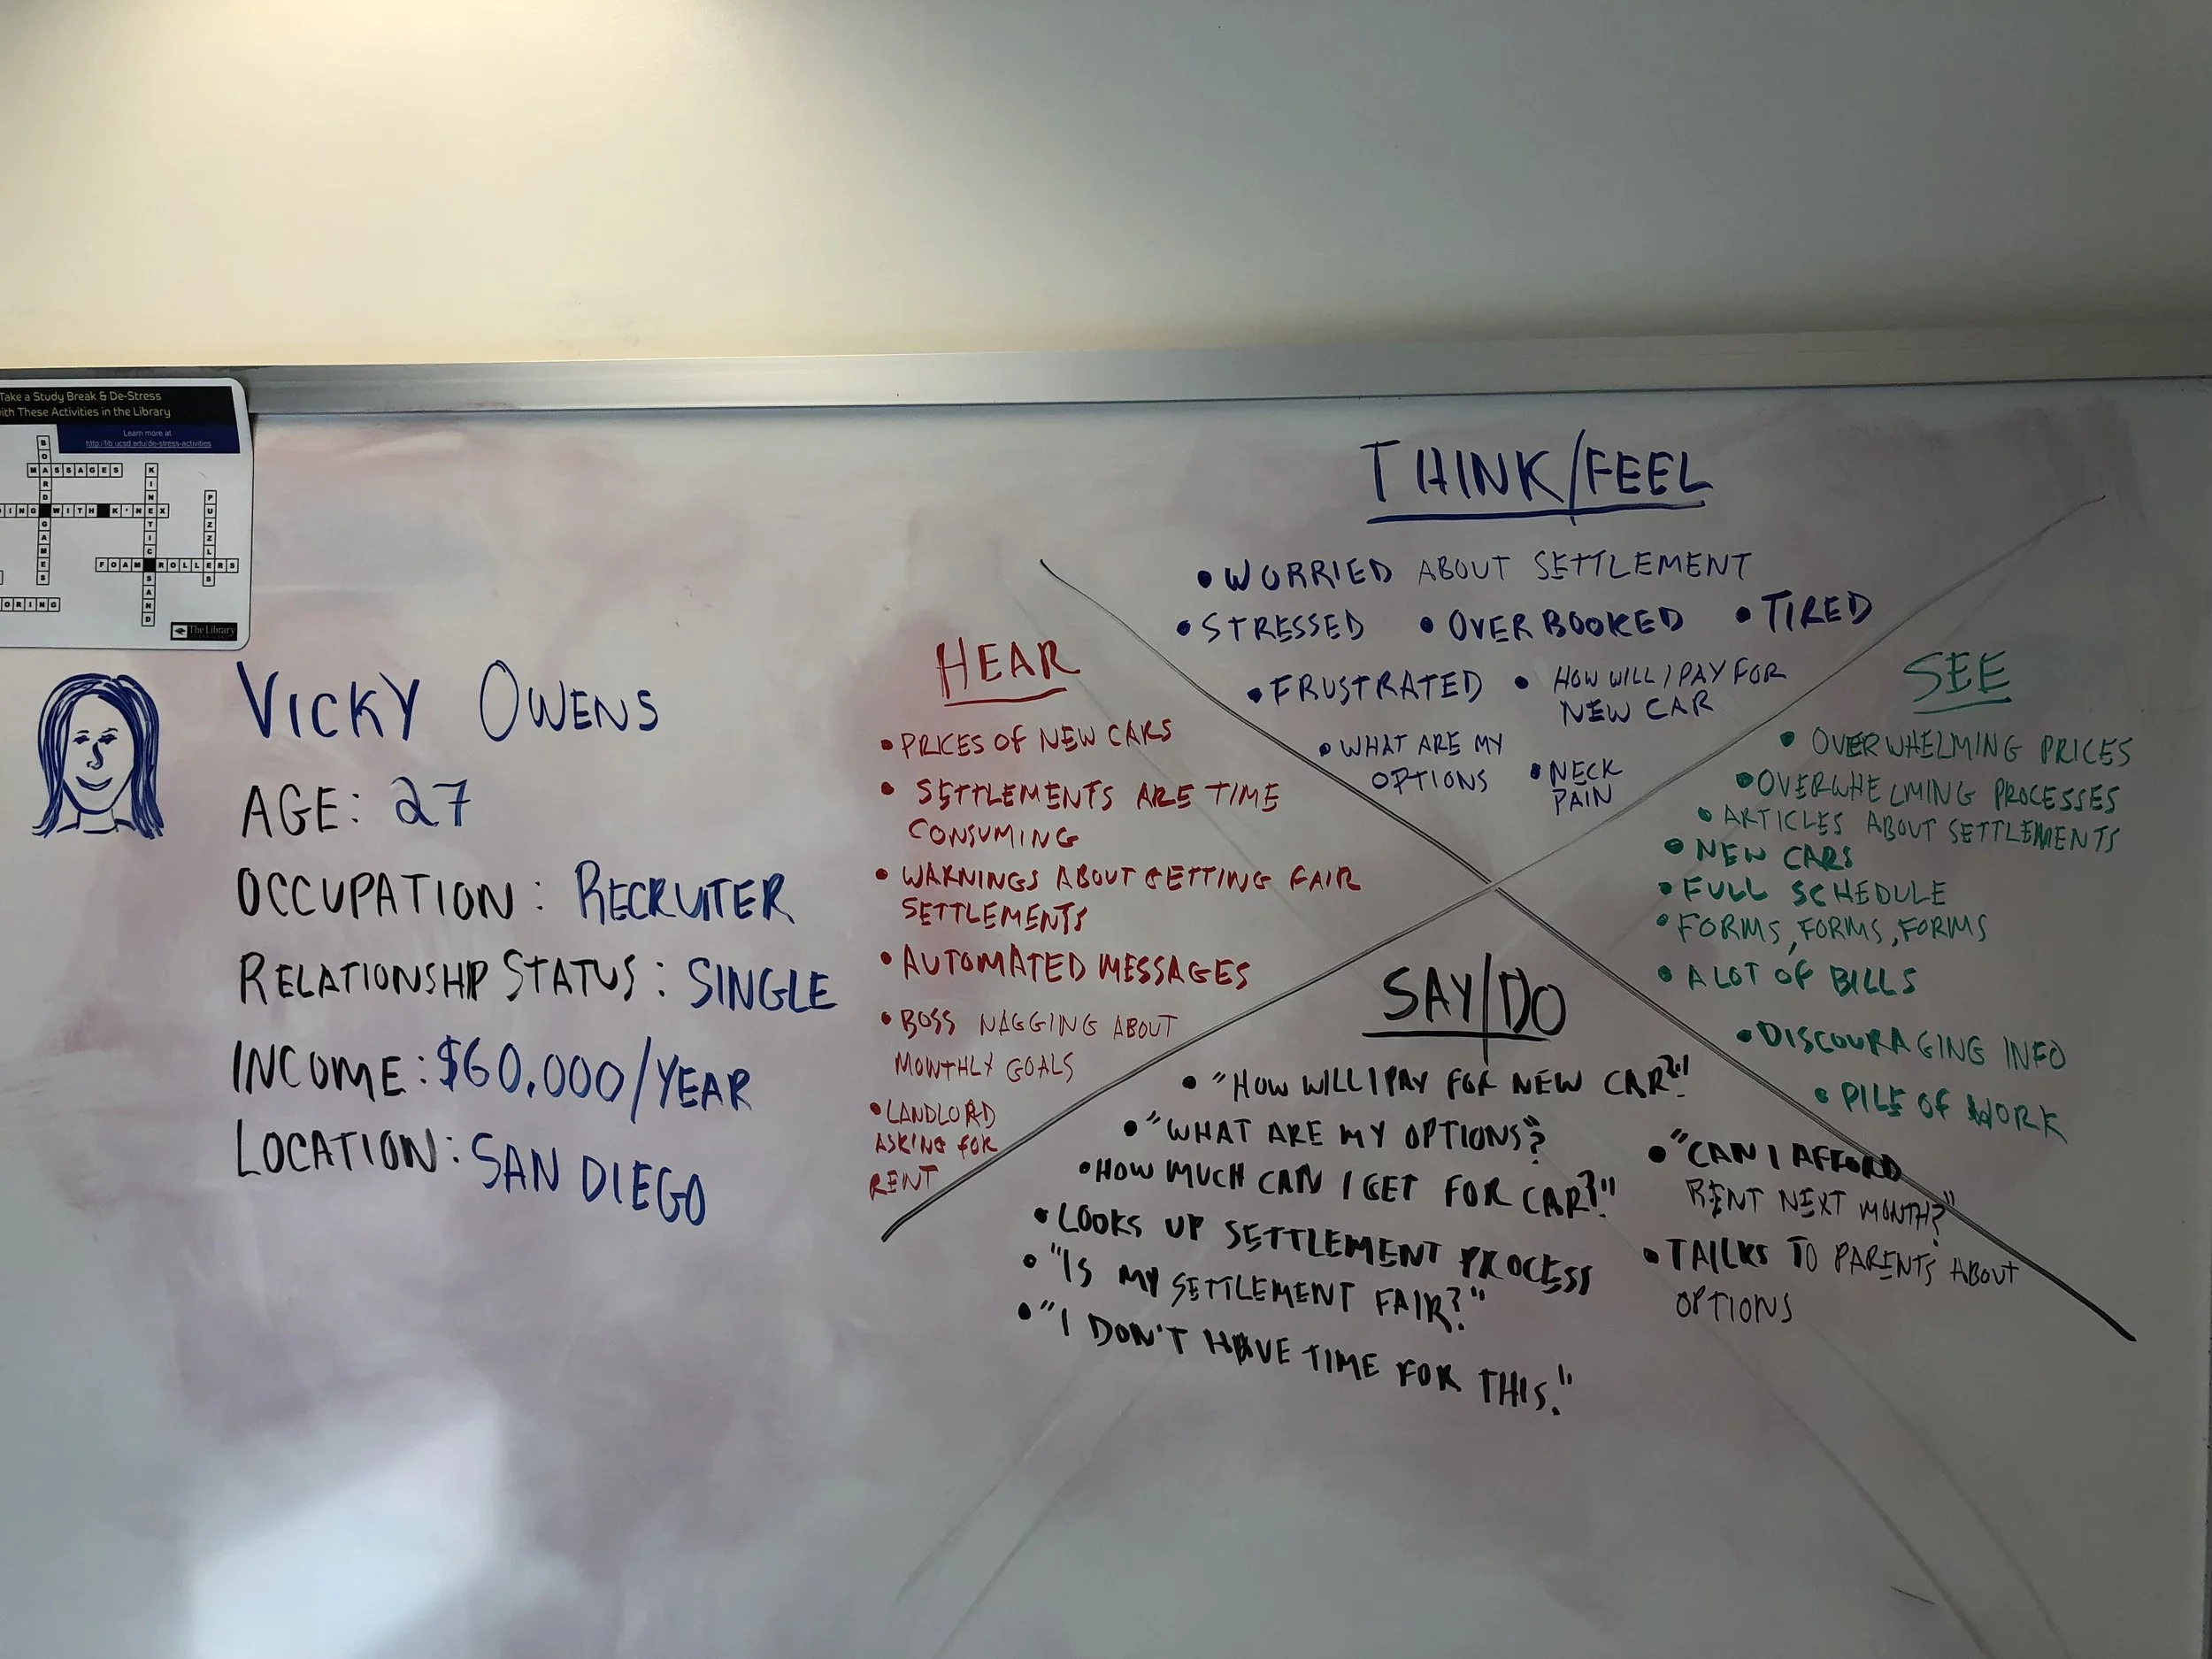 Take a Study Break & De-Stress
ith These Activities in the Library
Learn more at
http://lib.ucsd.edu/de-stress-activities
BOARD GAMES
MASSAGES
KINETIC SAND
ING WITH K'NEX
PUZZLES
FOAM ROLLERS
ORING
The Library
VICKY OWENS
AGE: 27
OCCUPATION: RECRUITER
RELATIONSHIP STATUS: SINGLE
INCOME: $60,000/YEAR
LOCATION: SAN DIEGO
THINK/FEEL
• WORRIED ABOUT SETTLEMENT
• STRESSED • OVERBOOKED • TIRED
• FRUSTRATED • HOW WILL I PAY FOR
NEW CAR
• WHAT ARE MY
OPTIONS
• NECK
PAIN
HEAR
• PRICES OF NEW CARS
• SETTLEMENTS ARE TIME
CONSUMING
• WARNINGS ABOUT GETTING FAIR
SETTLEMENTS
• AUTOMATED MESSAGES
• BOSS NAGGING ABOUT
MONTHLY GOALS
• LANDLORD
ASKING FOR
RENT
SEE
• OVERWHELMING PRICES
• OVERWHELMING PROCESSES
• ARTICLES ABOUT SETTLEMENTS
• NEW CARS
• FULL SCHEDULE
• FORMS, FORMS, FORMS
• A LOT OF BILLS
• DISCOURAGING INFO
• PILE OF WORK
SAY/DO
• "HOW WILL I PAY FOR NEW CAR?"
• "WHAT ARE MY OPTIONS?"
• HOW MUCH CAN I GET FOR CAR?"
• LOOKS UP SETTLEMENT PROCESS
• "IS MY SETTLEMENT FAIR?"
• "I DON'T HAVE TIME FOR THIS."
• "CAN I AFFORD
RENT NEXT MONTH?"
• TALKS TO PARENTS ABOUT
OPTIONS